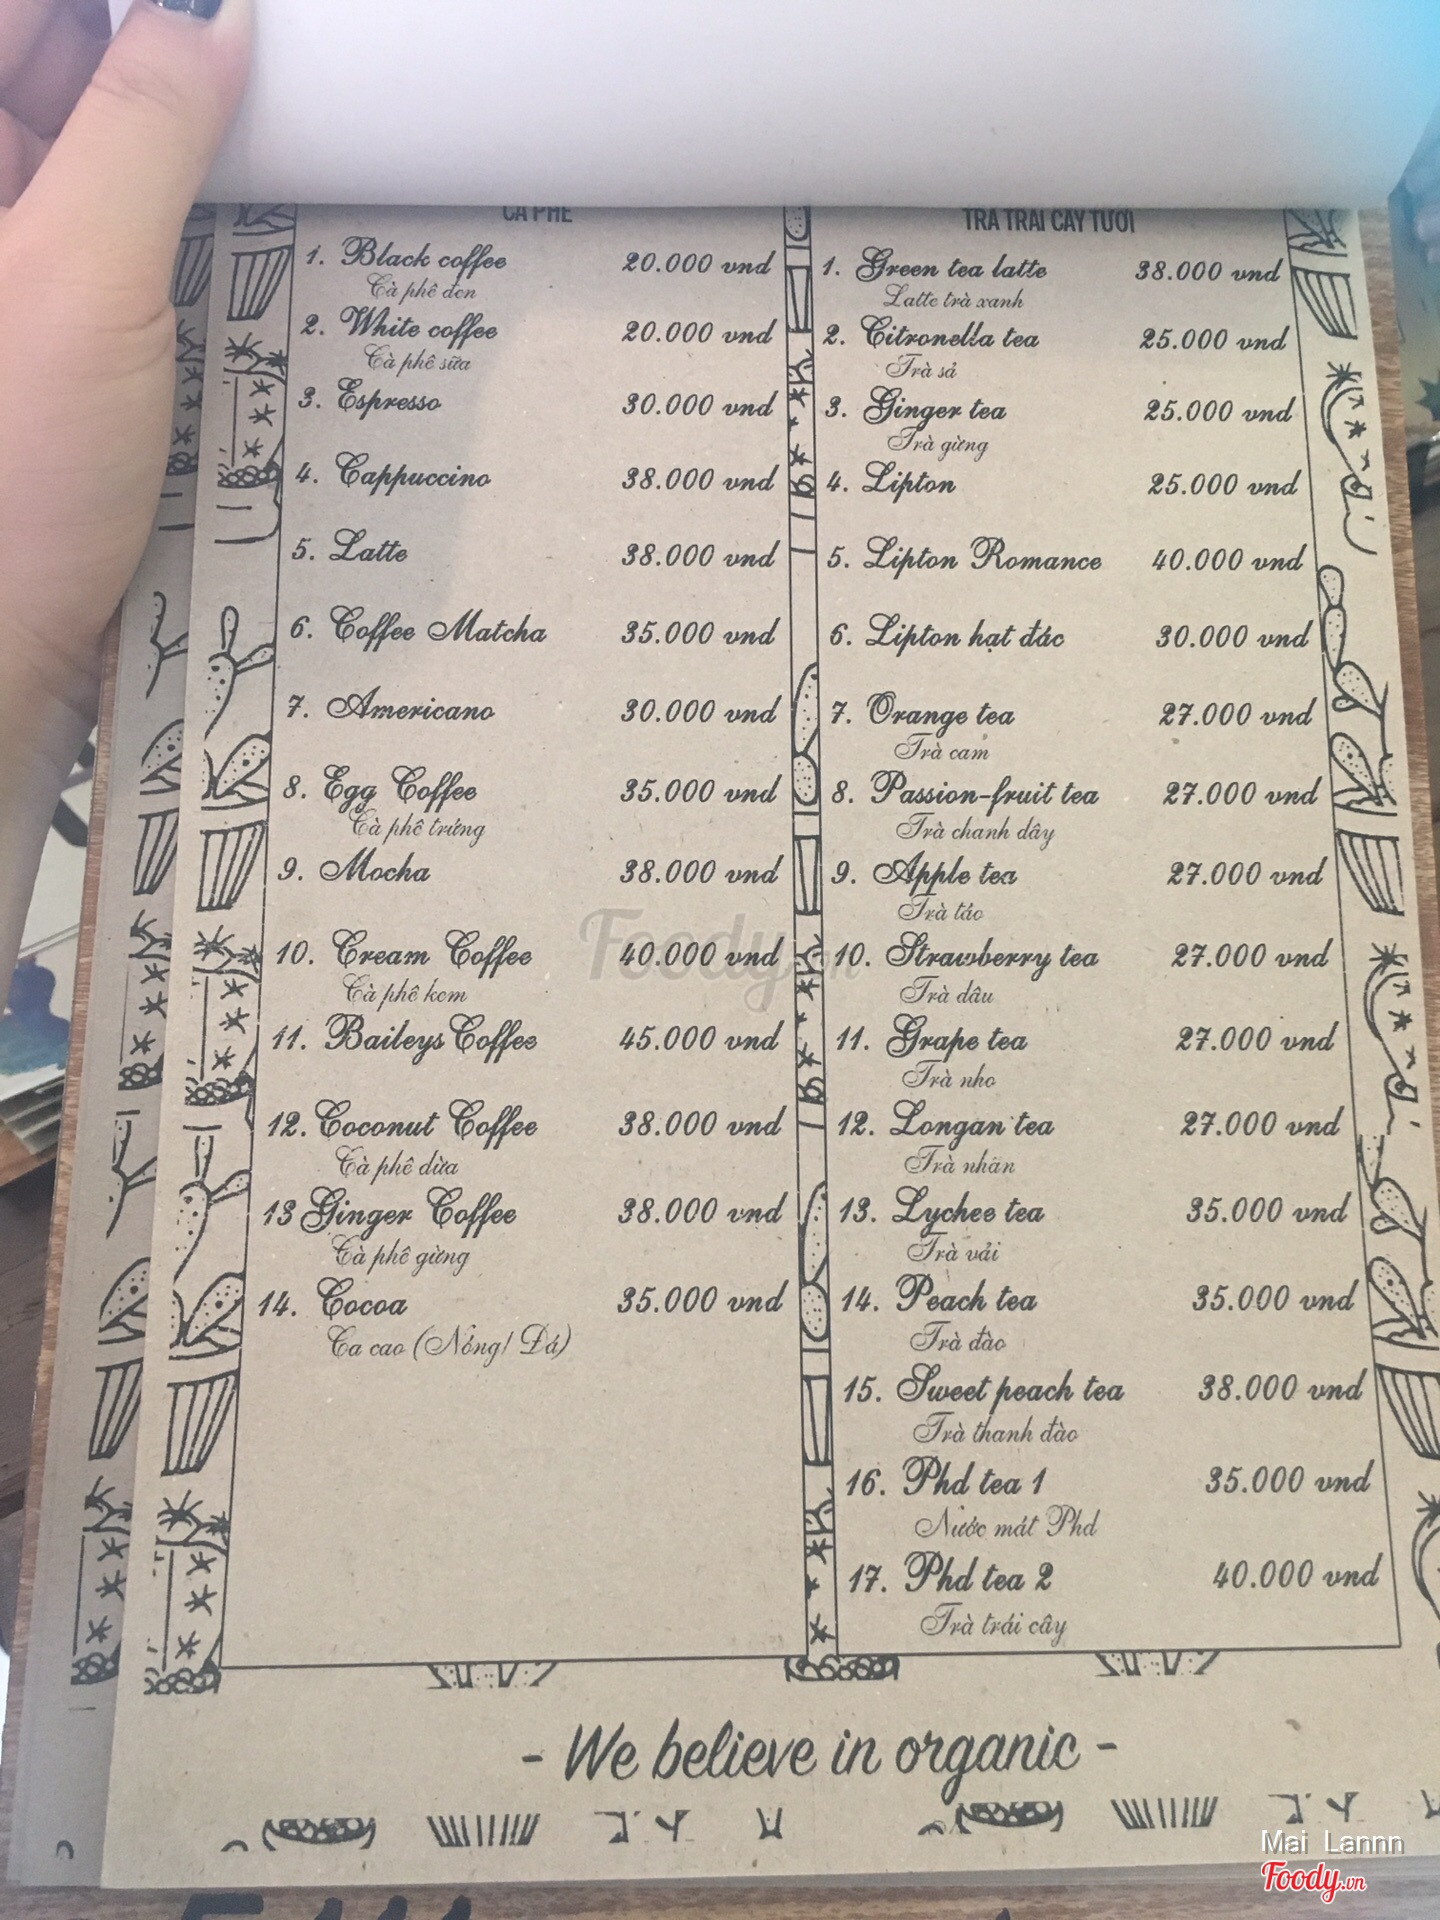 CÀ PHÊ
1. Black coffee 20.000 vnd
Cà phê đen
2. White coffee 20.000 vnd
Cà phê sữa
3. Espresso 30.000 vnd
4. Cappuccino 38.000 vnd
5. Latte 38.000 vnd
6. Coffee Matcha 35.000 vnd
7. Americano 30.000 vnd
8. Egg Coffee 35.000 vnd
Cà phê trứng
9. Mocha 38.000 vnd
10. Cream Coffee 40.000 vnd
Cà phê kem
11. Baileys Coffee 45.000 vnd
12. Coconut Coffee 38.000 vnd
Cà phê dừa
13 Ginger Coffee 38.000 vnd
Cà phê gừng
14. Cocoa 35.000 vnd
Ca cao (Nóng/ Đá)
TRÀ TRÁI CÂY TƯƠI
1. Green tea latte 38.000 vnd
Latte trà xanh
2. Citronella tea 25.000 vnd
Trà sả
3. Ginger tea 25.000 vnd
Trà gừng
4. Lipton 25.000 vnd
5. Lipton Romance 40.000 vnd
6. Lipton hạt đác 30.000 vnd
7. Orange tea 27.000 vnd
Trà cam
8. Passion-fruit tea 27.000 vnd
Trà chanh dây
9. Apple tea 27.000 vnd
Trà táo
10. Strawberry tea 27.000 vnd
Trà dâu
11. Grape tea 27.000 vnd
Trà nho
12. Longan tea 27.000 vnd
Trà nhãn
13. Lychee tea 35.000 vnd
Trà vải
14. Peach tea 35.000 vnd
Trà đào
15. Sweet peach tea 38.000 vnd
Trà thanh đào
16. Phd tea 1 35.000 vnd
Nước mát Phd
17. Phd tea 2 40.000 vnd
Trà trái cây
- We believe in organic -
Foody.vn
Mai Lannn
Foody.vn